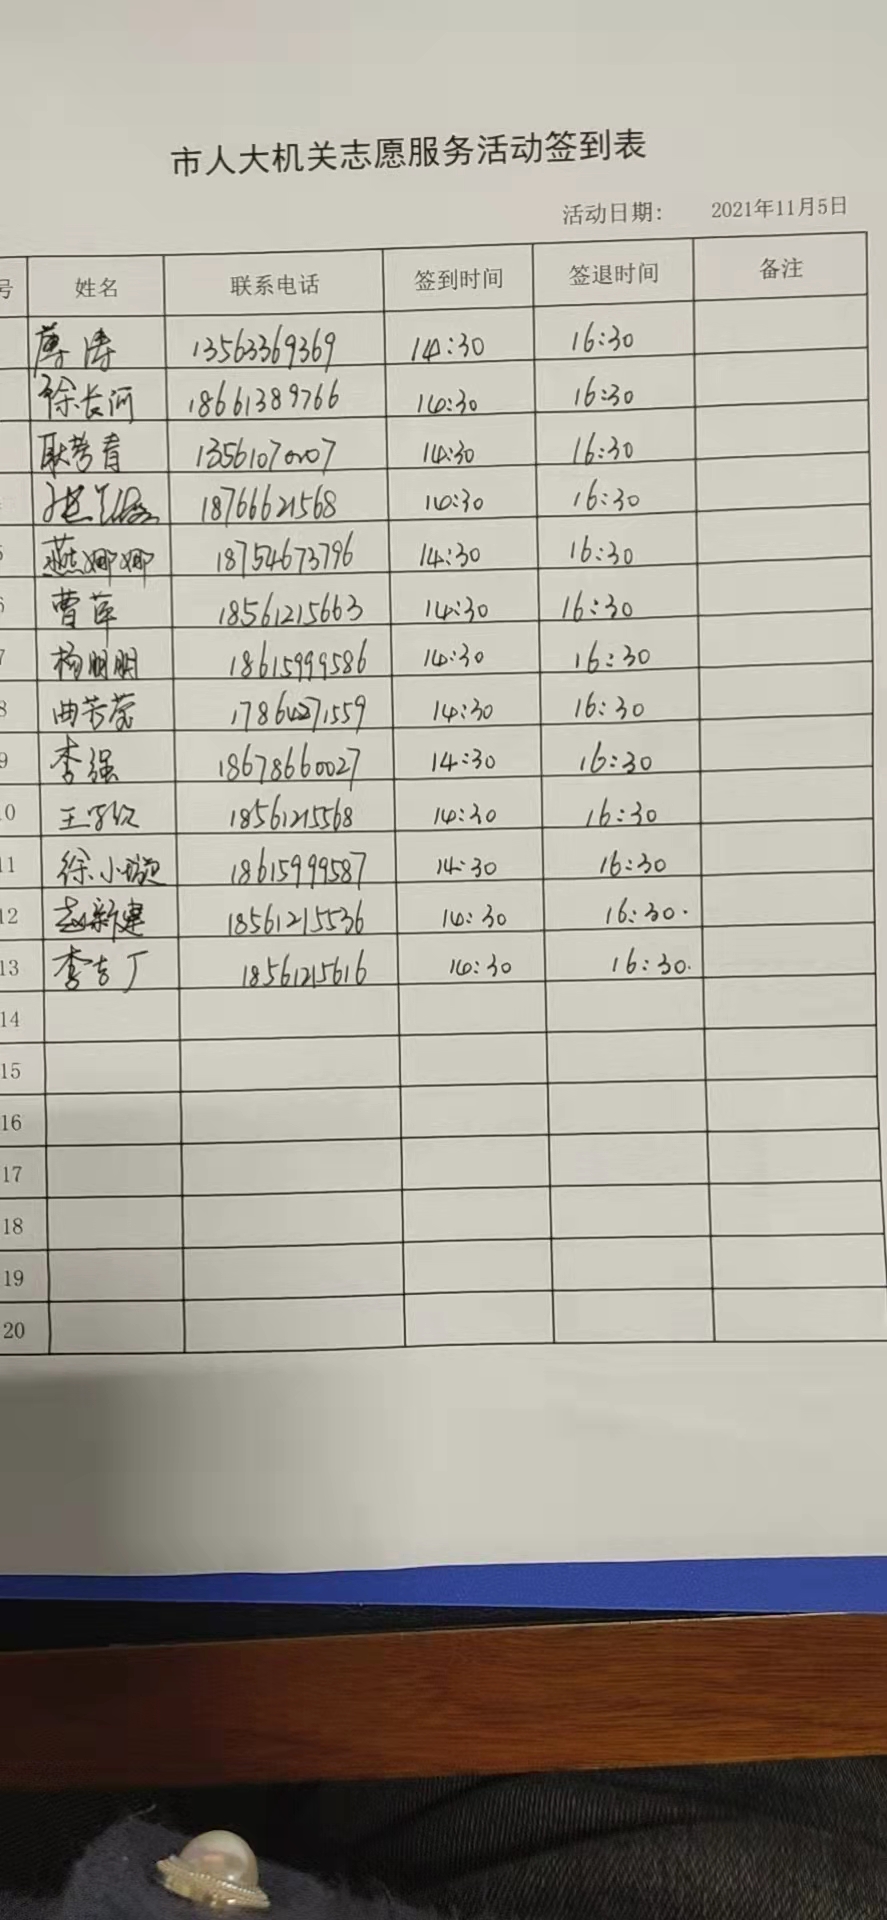 市人大机关志愿服务活动签到表
活动日期: 2021年11月5日
号 姓名 联系电话 签到时间 签退时间 备注
薄涛 13563369369 14:30 16:30
徐长河 18661389766 14:30 16:30
耿芳青 13561070207 14:30 16:30
18766621568 14:30 16:30
5 燕娜娜 18754673796 14:30 16:30
6 曹萍 18561215663 14:30 16:30
7 杨明明 18615999586 14:30 16:30
8 曲芳莹 17864271559 14:30 16:30
9 李强 18678660027 14:30 16:30
10 王 18561215568 14:30 16:30
11 徐小璇 18615999587 14:30 16:30
12 赵新建 18561215536 14:30 16:30.
13 李吉广 18561215616 14:30 16:30.
14
15
16
17
18
19
20